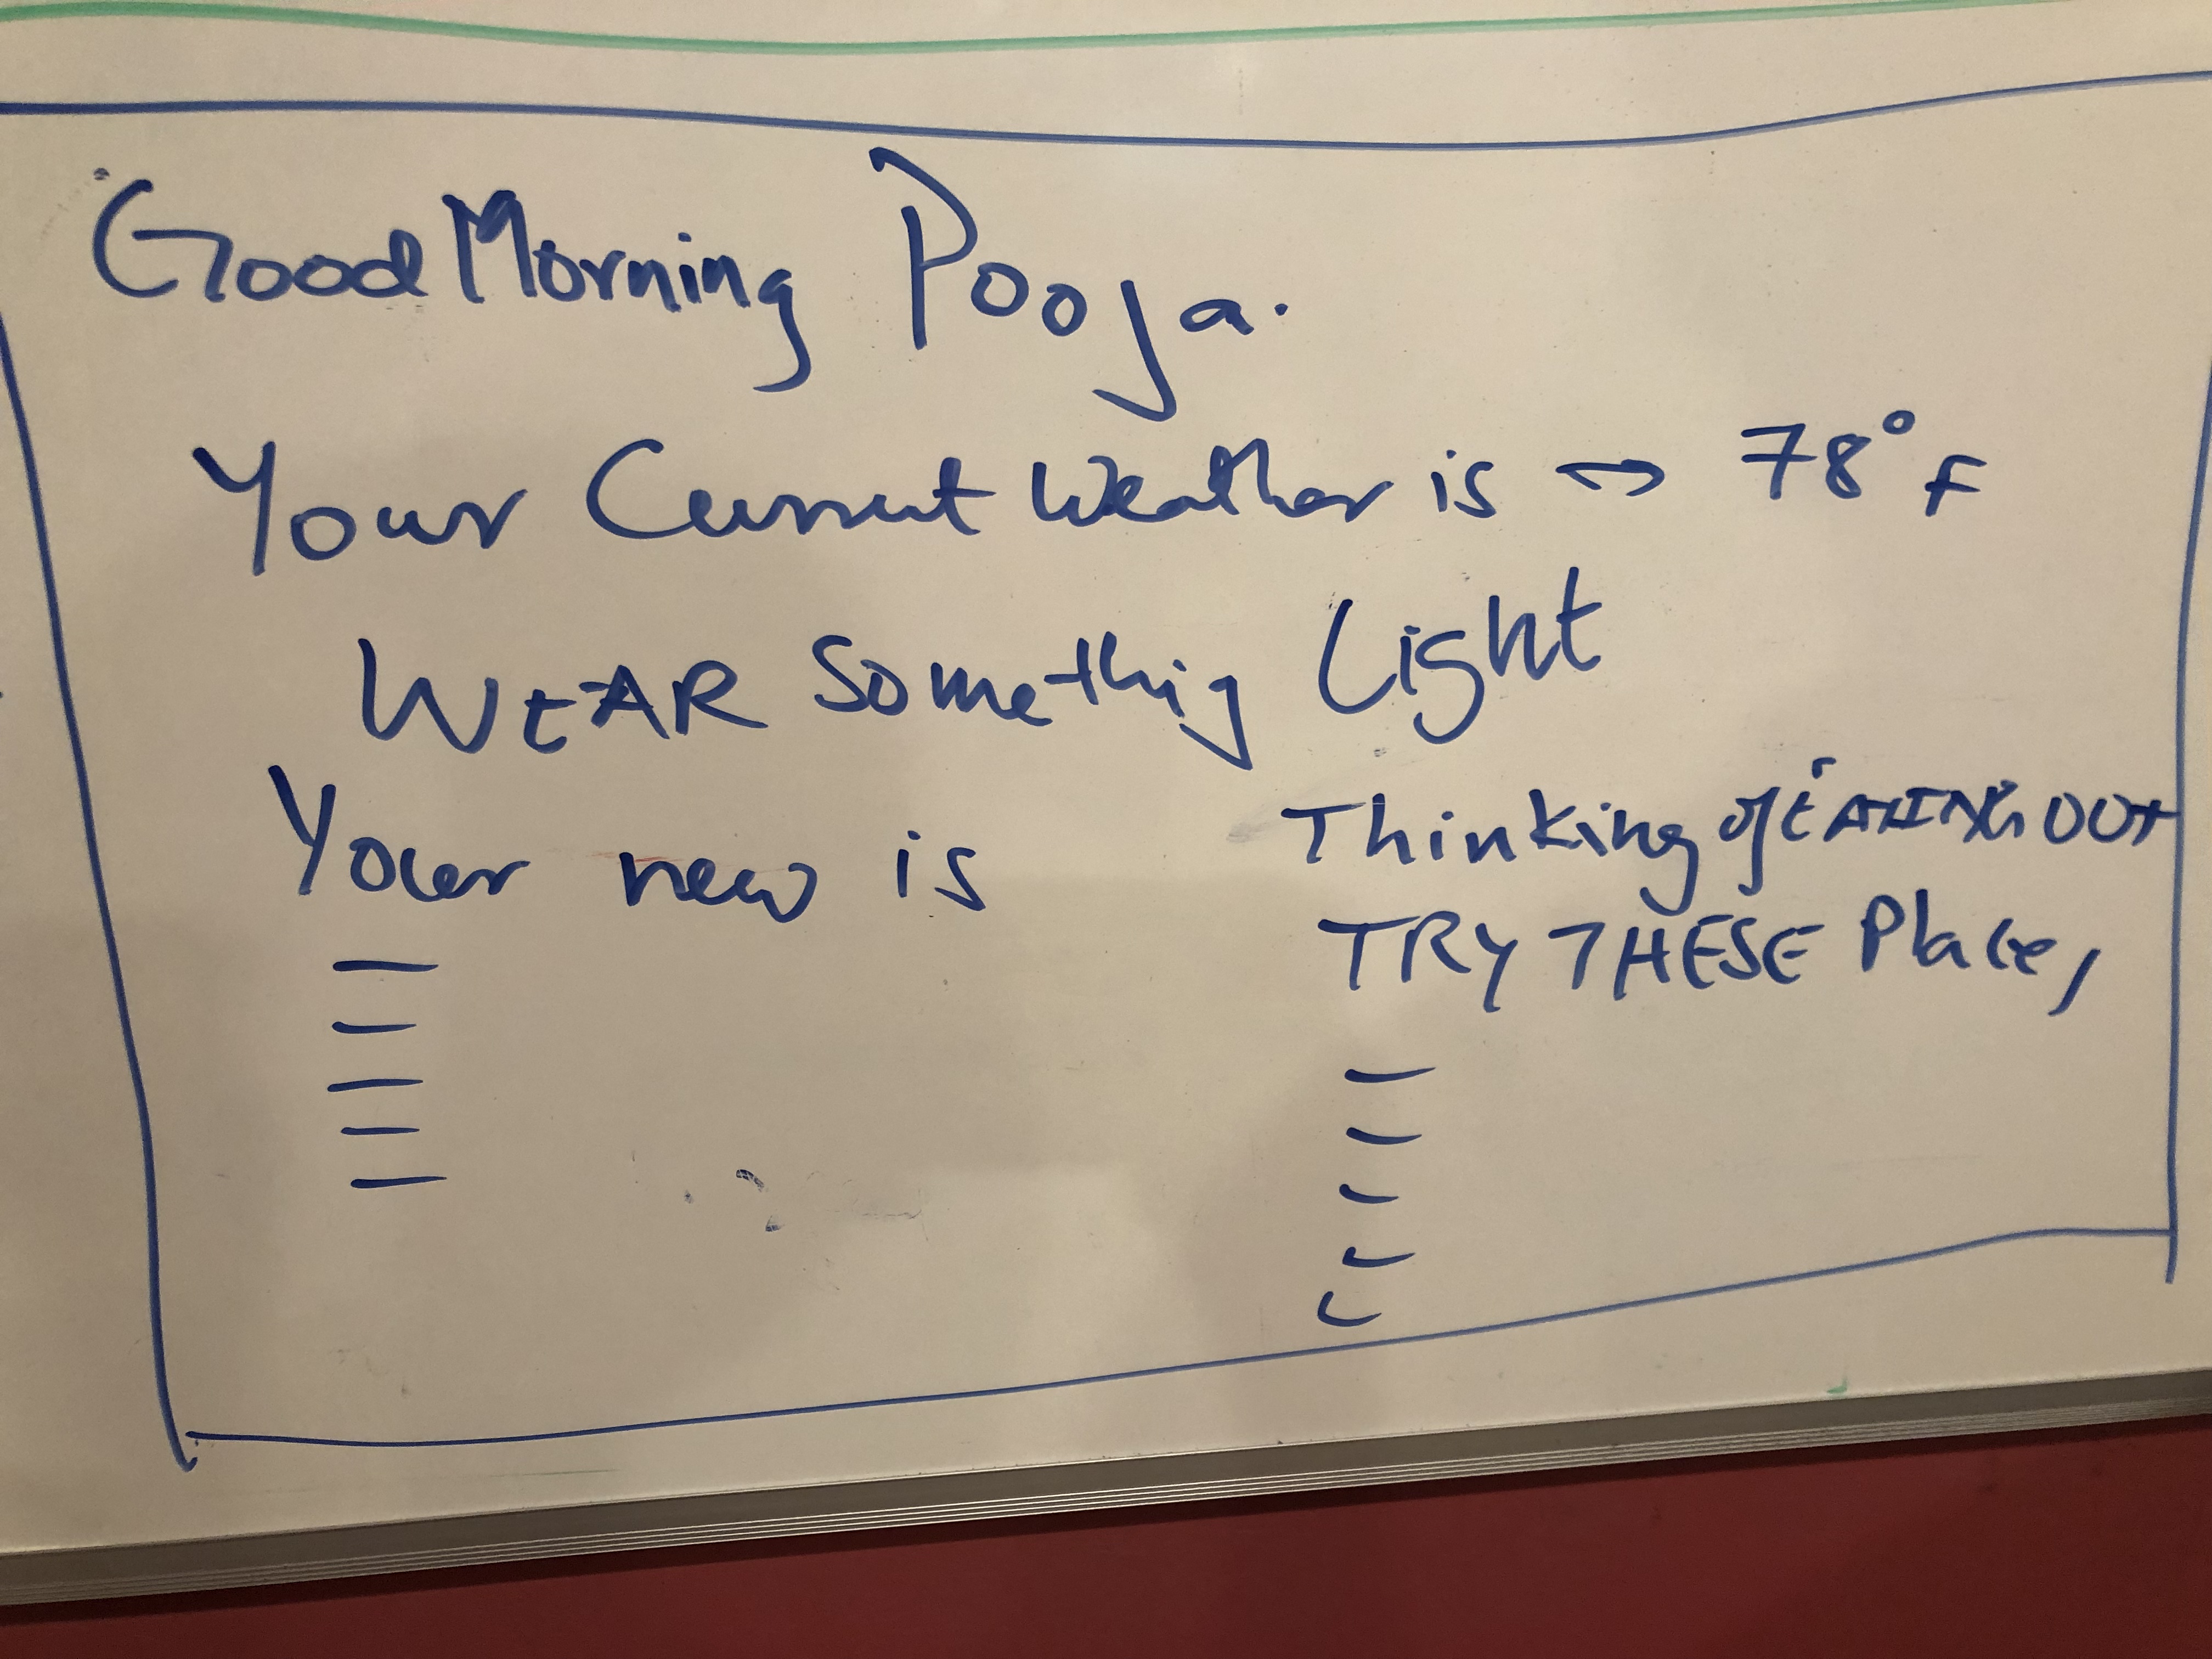 Good Morning Pooja.
Your Current Weather is ↔ 78°F
WEAR Something Light
Your new is
–
–
–
–
–
Thinking of EATING OUT
TRY THESE Places
–
–
–
–
–